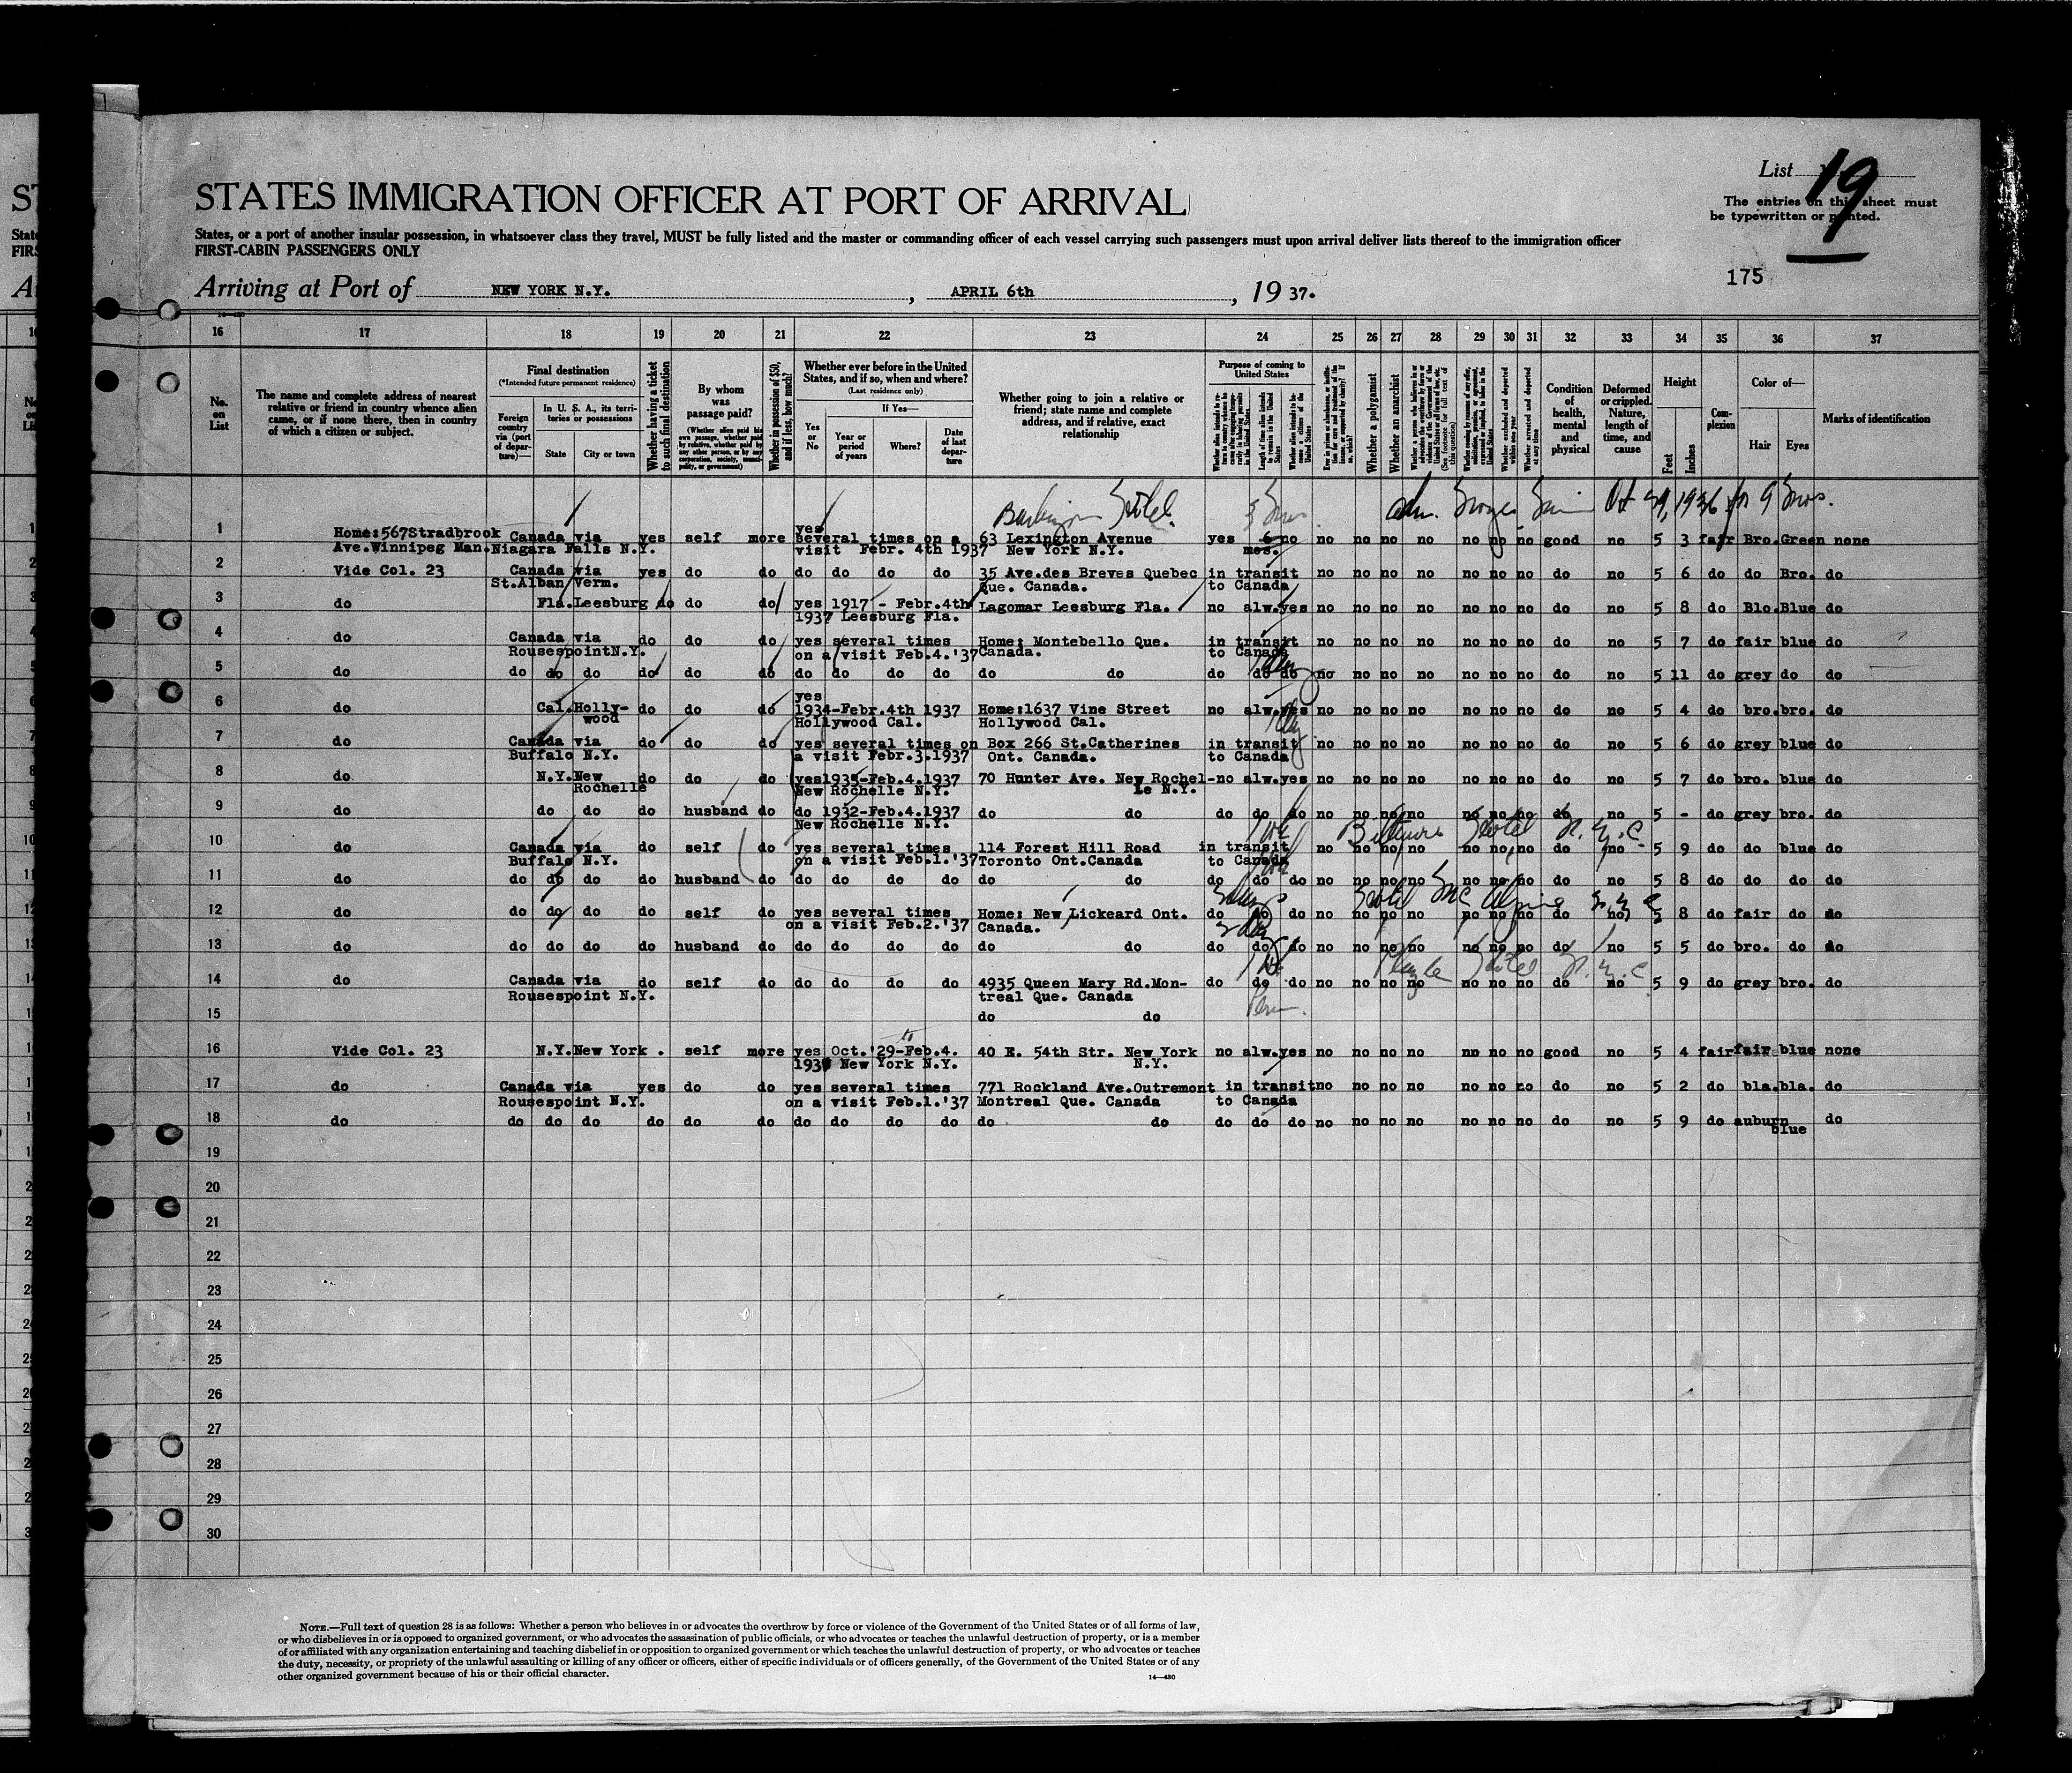 List 19
STATES IMMIGRATION OFFICER AT PORT OF ARRIVAL
The entries on this sheet must
be typewritten or printed.
States, or a port of another insular possession, in whatsoever class they travel, MUST be fully listed and the master or commanding officer of each vessel carrying such passengers must upon arrival deliver lists thereof to the immigration officer
FIRST-CABIN PASSENGERS ONLY
175
Arriving at Port of NEW YORK N.Y. , APRIL 6th , 19 37.
16 17 18 19 20 21 22 23 24 25 26 27 28 29 30 31 32 33 34 35 36 37
No. on List
The name and complete address of nearest relative or friend in country whence alien came, or if none there, then in country of which a citizen or subject.
Final destination
(*Intended future permanent residence)
Foreign country via (port of departure)—
In U. S. A., its territories or possessions
State City or town
Whether having a ticket to such final destination
By whom was passage paid?
(Whether alien paid his own passage, whether paid by relative, whether paid by any other person, or by any corporation, society, municipality, or government)
Whether in possession of $50, and if less, how much?
Whether ever before in the United States, and if so, when and where?
(Last residence only)
If Yes—
Yes or No Year or period of years Where? Date of last departure
Whether going to join a relative or friend; state name and complete address, and if relative, exact relationship
Purpose of coming to United States
Whether a polygamist
Whether an anarchist
Condition of health, mental and physical
Deformed or crippled. Nature, length of time, and cause
Height
Feet Inches
Complexion
Color of—
Hair Eyes
Marks of identification
Hotel. Oct 29, 1936 for 9 mos.
1 Home:567Stradbrook Canada via yes self more yes several times on a 63 Lexington Avenue yes 6 no no no no no no no no good no 5 3 fair Bro. Green none
Ave.Winnipeg Man. Niagara Falls N.Y. visit Febr. 4th 1937 New York N.Y. mos.
2 Vide Col. 23 Canada via yes do do do do do do 35 Ave.des Breves Quebec in transit no no no no no no no do no 5 6 do do Bro. do
St.Alban Verm. Que. Canada. to Canada
3 do Fla. Leesburg do do do yes 1917 - Febr.4th Lagomar Leesburg Fla. no alw. yes no no no no no no no do no 5 8 do Blo. Blue do
1937 Leesburg Fla.
4 do Canada via do do do yes several times Home: Montebello Que. in transit no no no no no no no do no 5 7 do fair blue do
Rousespoint N.Y. on a visit Feb.4.'37 Canada. to Canada
5 do do do do do do do do do do do do do do do do no no no no no no no do no 5 11 do grey do do
6 do Cal. Holly- do do do yes Home:1637 Vine Street no alw. yes no no no no no no no do no 5 4 do bro. bro. do
wood 1934-Febr.4th 1937 Hollywood Cal.
Hollywood Cal.
7 do Canada via do do do yes several times on Box 266 St.Catherines in transit no no no no no no no do no 5 6 do grey blue do
Buffalo N.Y. a visit Febr.3.1937 Ont. Canada. to Canada
8 do N.Y. New do do do yes 1935-Feb.4.1937 70 Hunter Ave. New Rochel- no alw. yes no no no no no no no do no 5 7 do bro. blue do
Rochelle New Rochelle N.Y. Le N.Y.
9 do do do do husband do do 1932-Feb.4.1937 do do do do do no no no no no no no do no 5 - do grey bro. do
New Rochelle N.Y.
Biltmore Hotel N.Y.C
10 do Canada via do self do yes several times 114 Forest Hill Road in transit no no no no no no no do no 5 9 do do blue do
Buffalo N.Y. on a visit Feb.1.'37 Toronto Ont.Canada to Canada
11 do do do do do husband do do do do do do do do do do no no no no no no no do no 5 8 do do do do
Hotel McAlpine N.Y.C
12 do do do do do self do yes several times Home: New Lickeard Ont. do do do no no no no no no no do no 5 8 do fair do do
on a visit Feb.2.'37 Canada.
13 do do do do do husband do do do do do do do do do do no no no no no no no do no 5 5 do bro. do do
Hotel N.Y.C
14 do Canada via do self do do do do do 4935 Queen Mary Rd.Mon- do do do no no no no no no no do no 5 9 do grey bro. do
Rousespoint N.Y. treal Que. Canada
15 do do
16 Vide Col. 23 N.Y. New York . self more yes Oct.'29-Feb.4. 40 E. 54th Str. New York no alw. yes no no no no no no no good no 5 4 fair fair blue none
1937 New York N.Y. N.Y.
17 do Canada via yes do do yes several times 771 Rockland Ave.Outremont in transit no no no no no no no do no 5 2 do bla. bla. do
Rousespoint N.Y. on a visit Feb.1.'37 Montreal Que. Canada to Canada
18 do do do do do do do do do do do do do do do do no no no no no no no do no 5 9 do auburn blue do
19
20
21
22
23
24
25
26
27
28
29
30
NOTE.—Full text of question 28 is as follows: Whether a person who believes in or advocates the overthrow by force or violence of the Government of the United States or of all forms of law,
or who disbelieves in or is opposed to organized government, or who advocates the assassination of public officials, or who advocates or teaches the unlawful destruction of property, or is a member
of or affiliated with any organization entertaining and teaching disbelief in or opposition to organized government or which teaches the unlawful destruction of property, or who advocates or teaches
the duty, necessity, or propriety of the unlawful assaulting or killing of any officer or officers, either of specific individuals or of officers generally, of the Government of the United States or of any
other organized government because of his or their official character.
14—430